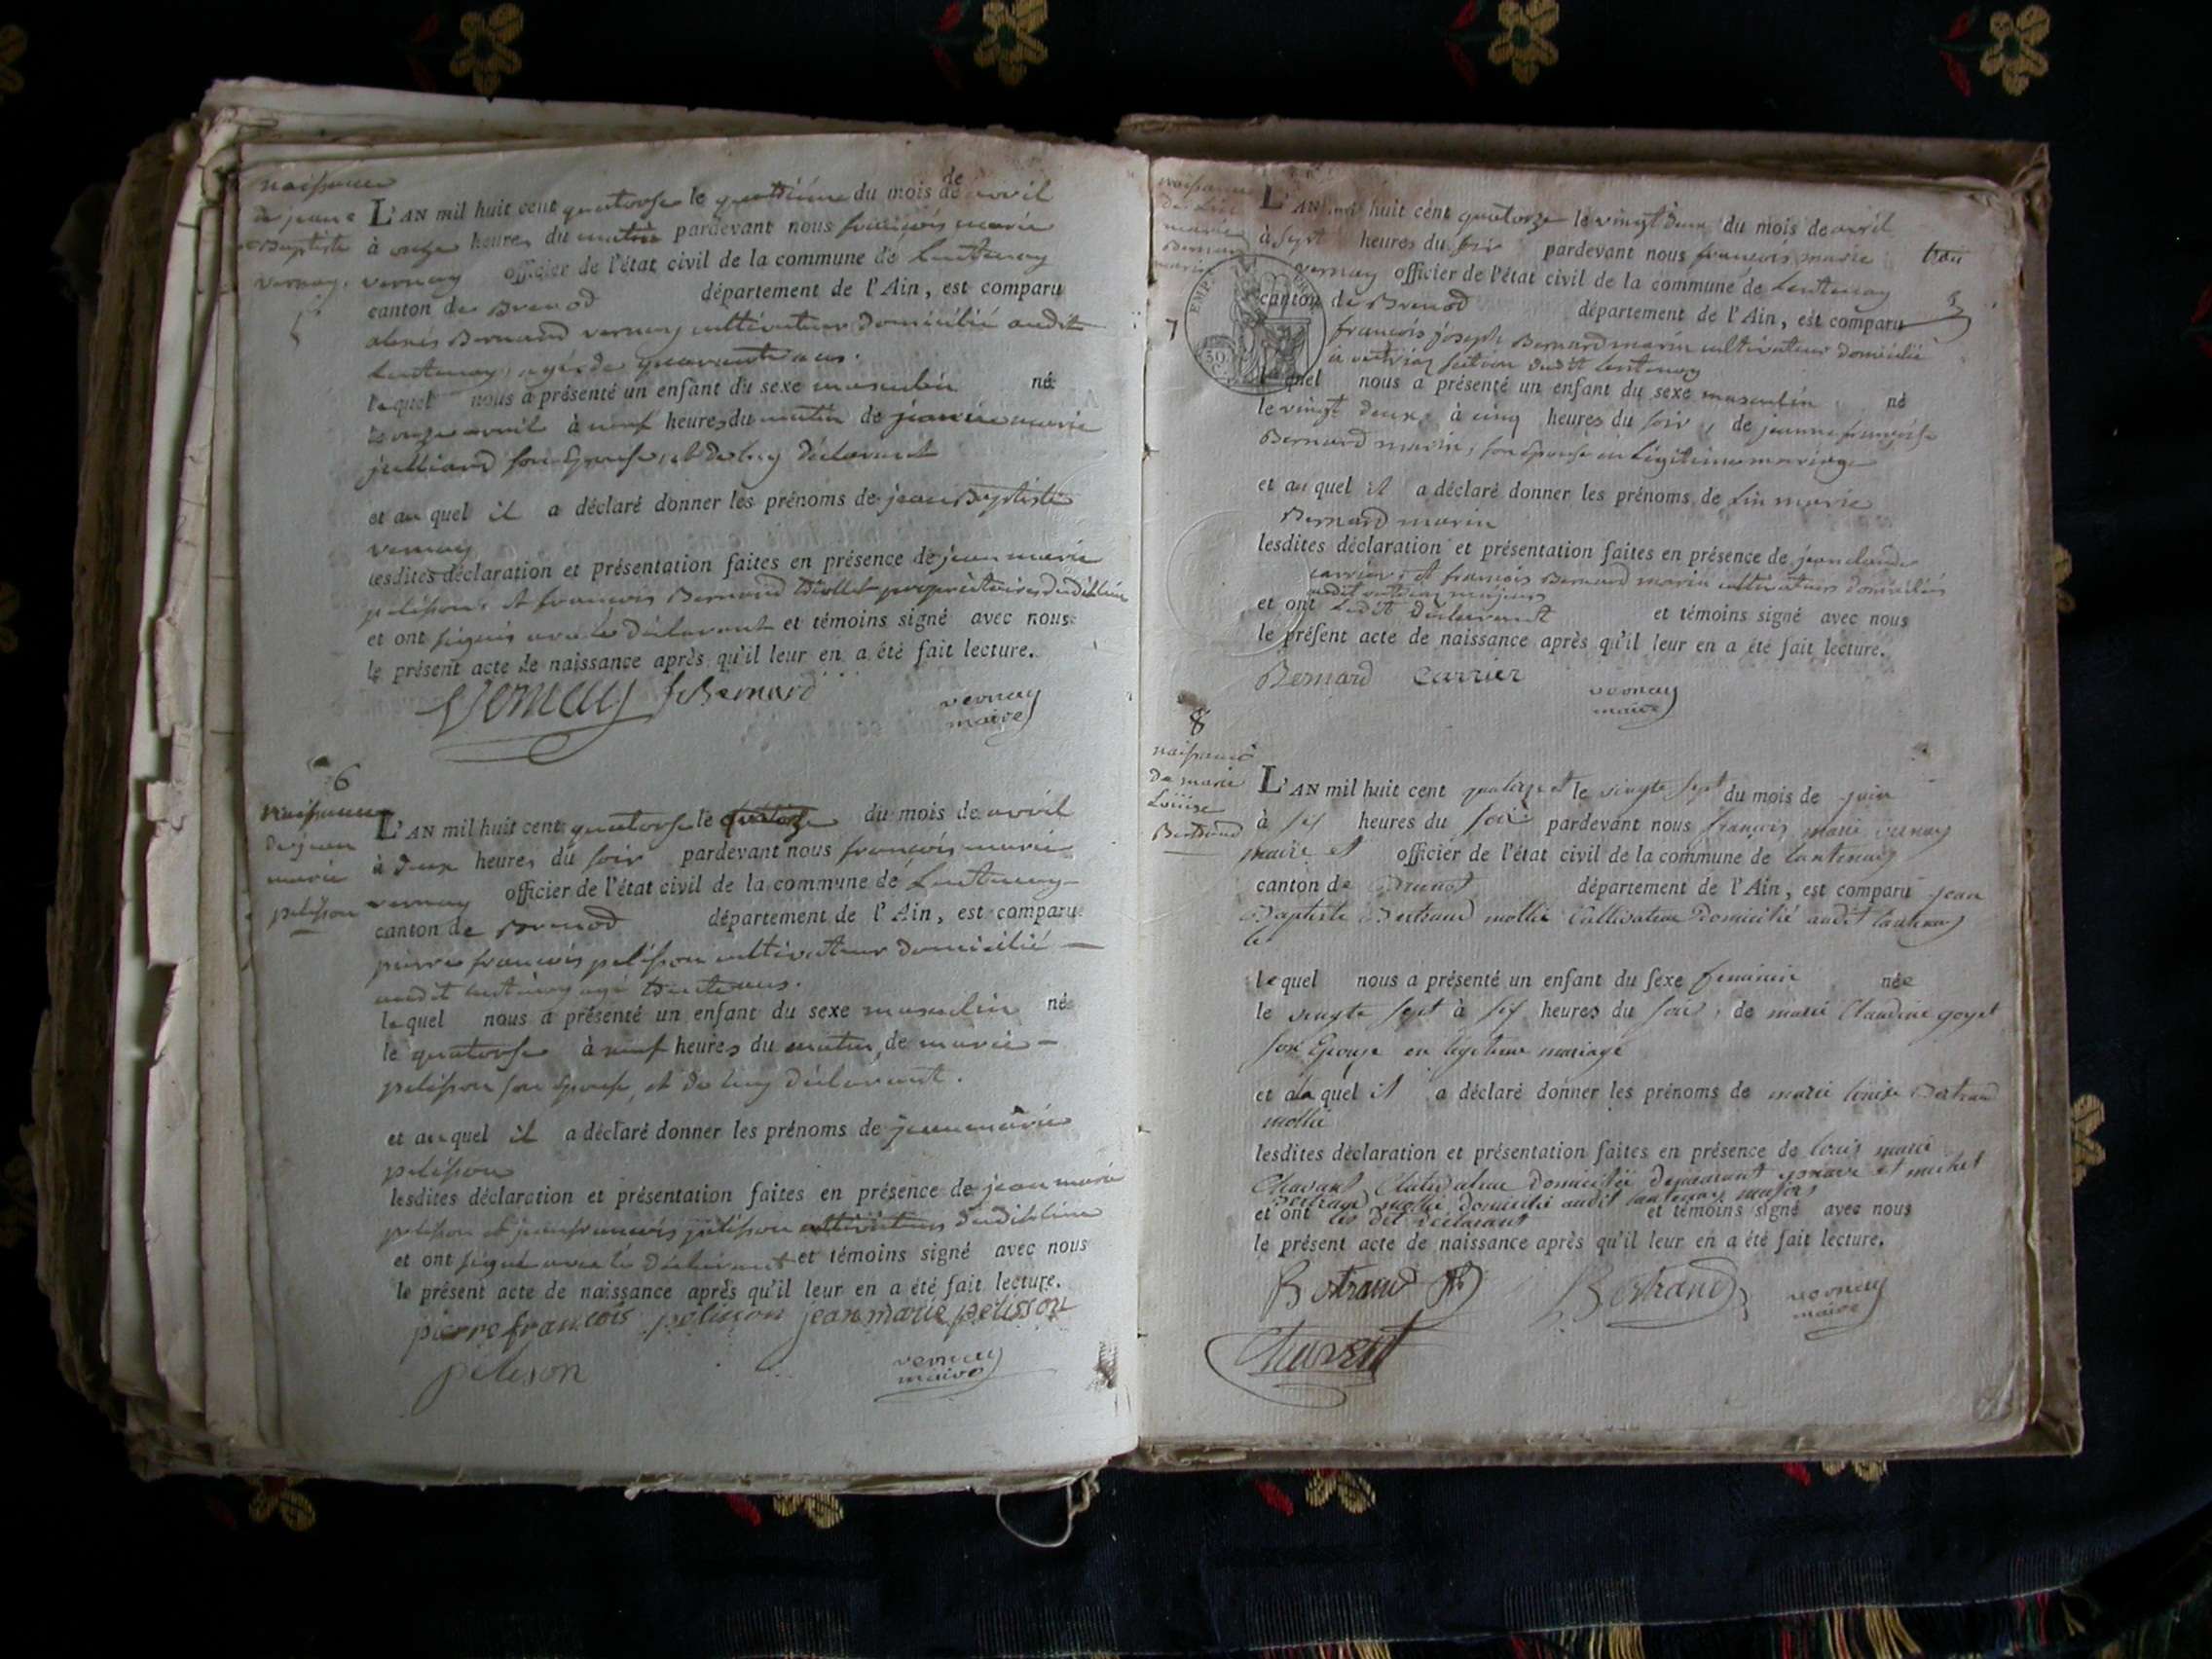 naissance
de jean
Baptiste
vernay.
5
L'AN mil huit cent quatorse le du mois de avril
à onze heures du matin pardevant nous françois marie
vernay officier de l'état civil de la commune de Lentenay
canton de Brenod département de l'Ain, est comparu
alexis Bernard vernay cultivateur domicilié audit
Lentenay, agé de quarante ans.
lequel nous a présenté un enfant du sexe masculin né
avril à neuf heures du matin de jeanne marie
julliard son Epouse, et de luy déclarant
et au quel il a déclaré donner les prénoms de jean Baptiste
vernay
lesdites déclaration et présentation faites en présence de jean marie
pelisson et francois Bernard propriétaires dudit lieu
et ont signés avec le déclarant et témoins signé avec nous
le présent acte de naissance après qu'il leur en a été fait lecture.
Vernay fs Bernard
vernay
maire
6
naissance
de jean
marie
pelisson
L'AN mil huit cent quatorse le quatorze du mois de avril
à deux heures du soir pardevant nous françois marie
vernay officier de l'état civil de la commune de Lentenay
canton de Brenod département de l'Ain, est comparu
pierre francois pelisson cultivateur domicilié
audit lentenay agé trente ans.
lequel nous a présenté un enfant du sexe masculin né
le quatorse à neuf heures du matin, de marie
pelisson son Epouse, et de luy déclarant.
et au quel il a déclaré donner les prénoms de jean marie
pelisson
lesdites déclaration et présentation faites en présence de jean marie
pelisson et jean francois pelisson cultivateurs dudit lieu
et ont signé avec le déclarant et témoins signé avec nous
le présent acte de naissance après qu'il leur en a été fait lecture.
pierre francois pelisson jean marie pelisson
pelison
vernay
maire
naissance
de Lin
marie
Bernard
marin
7
L'AN mil huit cent quatorze le vingt deux du mois de avril
à sept heures du soir pardevant nous francois marie
vernay officier de l'état civil de la commune de Lentenay
canton de Brenod département de l'Ain, est comparu
30
C.
françois joseph Bernard marin cultivateur domicilié
à section dudit lentenay
lequel nous a présenté un enfant du sexe masculin né
le vingt deux à cinq heures du soir, de jeanne françoise
Bernard marin, son Epouse en Légitime mariage
et au quel il a déclaré donner les prénoms de Lin marie
Bernard marin
lesdites déclaration et présentation faites en présence de jean claude
carrier, et françois Bernard marin cultivateurs domiciliés
audit majeurs
et ont Ledit Déclarant et témoins signé avec nous
le présent acte de naissance après qu'il leur en a été fait lecture.
Bernard Carrier
vernay
maire
8
naissance
de marie
Louise
Bertrand
L'AN mil huit cent quatorze et le vingte sept du mois de juin
à six heures du soir pardevant nous françois marie vernay
maire et officier de l'état civil de la commune de Lantenay
canton de Brenod département de l'Ain, est comparu jean
Baptiste Bertrand mollie Cultivateur Domicilié audit Lantenay
le
lequel nous a présenté un enfant du sexe feminin née
le vingte sept à six heures du soir, de marie Claudine goyet
son Epouse en legitime mariage
et à la quel il a déclaré donner les prénoms de marie louise Bertrand
mollie
lesdites déclaration et présentation faites en présence de louis marie
Chavent Cultivateur Domicilié et michel
Bertrand mollie Domicilié audit lantenay majeurs
et ont les dit déclarant et témoins signé avec nous
le présent acte de naissance après qu'il leur en a été fait lecture.
Bertrand Bertrand
vernay
maire
Chavent